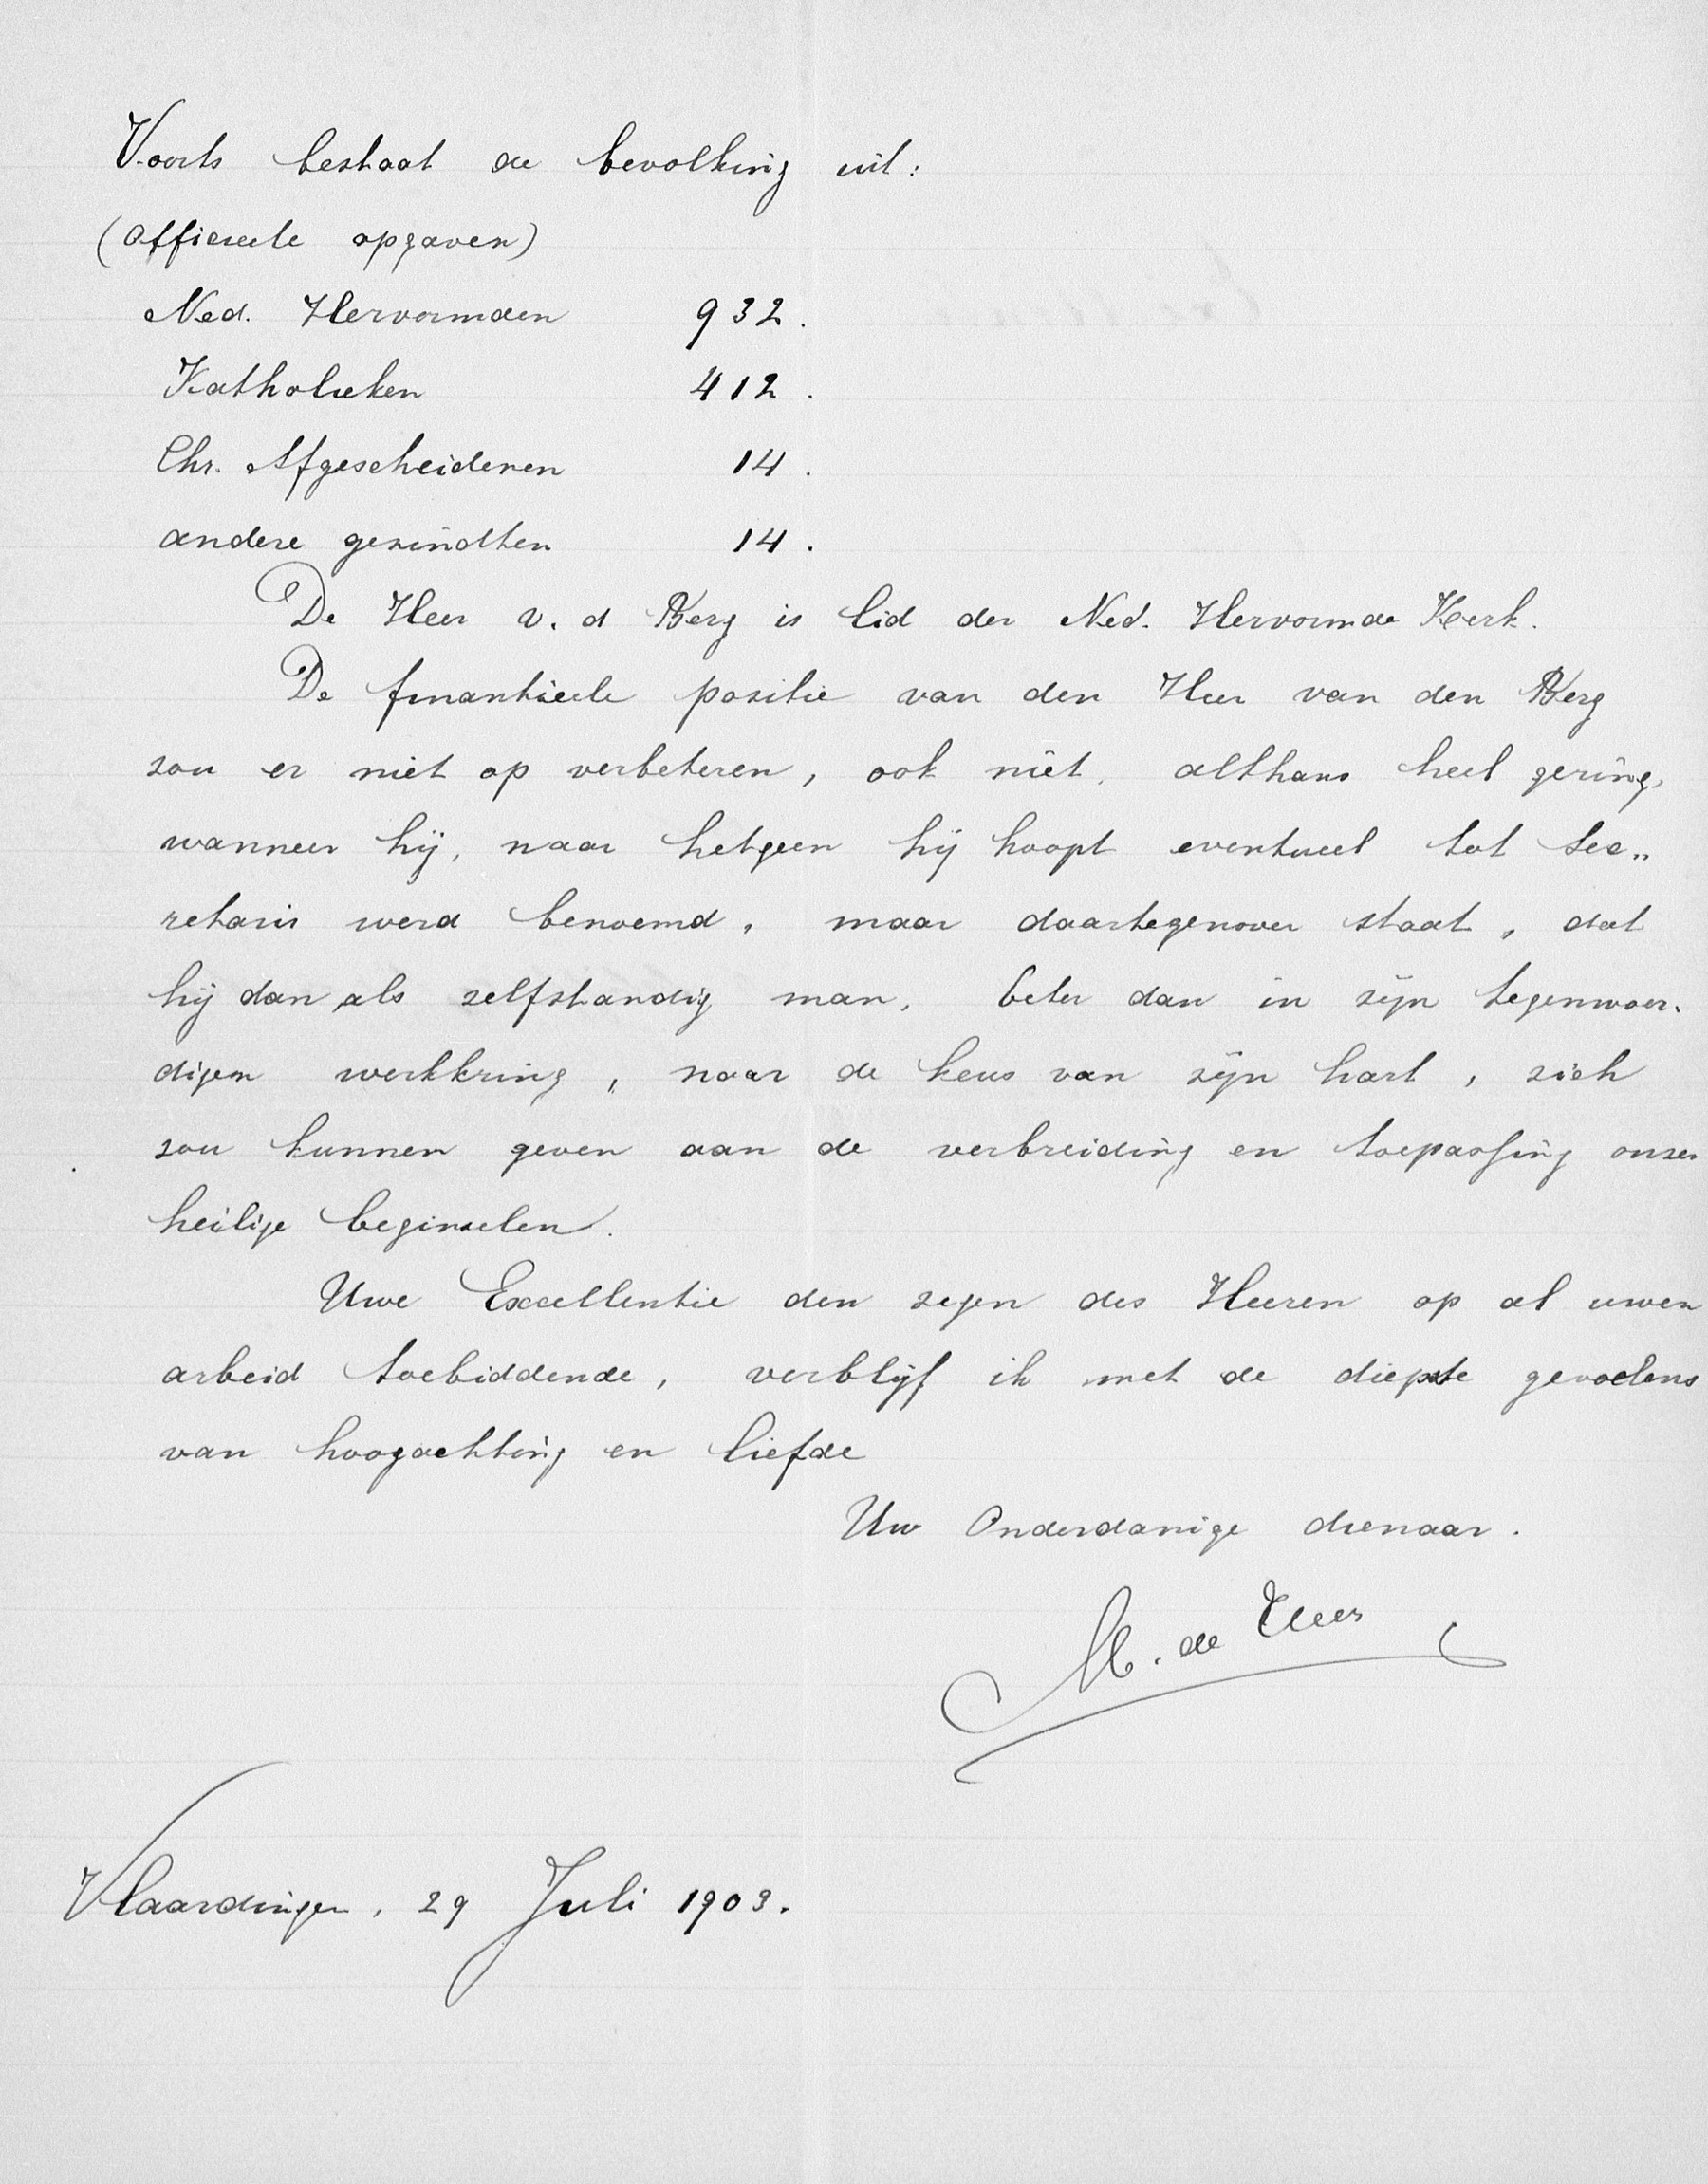 Voorts bestaat de bevolking uit:
(Officieele opgaven)
Ned. Hervormden 932.
Katholieken 412.
Chr. Afgescheidenen 14.
andere gezindten 14.
De Heer v. d Berg is lid der Ned. Hervormde Kerk.
De finantieele positie van den Heer van den Berg
zou er niet op verbeteren, ook niet, althans heel gering,
wanneer hij, naar hetgeen hij hoopt eventueel tot Sec„
retaris werd benoemd, maar daartegenover staat, dat
hij dan als zelfstandig man, beter dan in zijn tegenwoor-
digen werkkring, naar de keus van zijn hart, zich
zou kunnen geven aan de verbreiding en toepassing onzer
heilige beginselen.
Uwe Excellentie den zegen des Heeren op al uwen
arbeid toebiddende, verblijf ik met de diepste gevoelens
van hoogachting en liefde
Uw Onderdanige dienaar.
M. de
Vlaardingen, 29 Juli 1903.